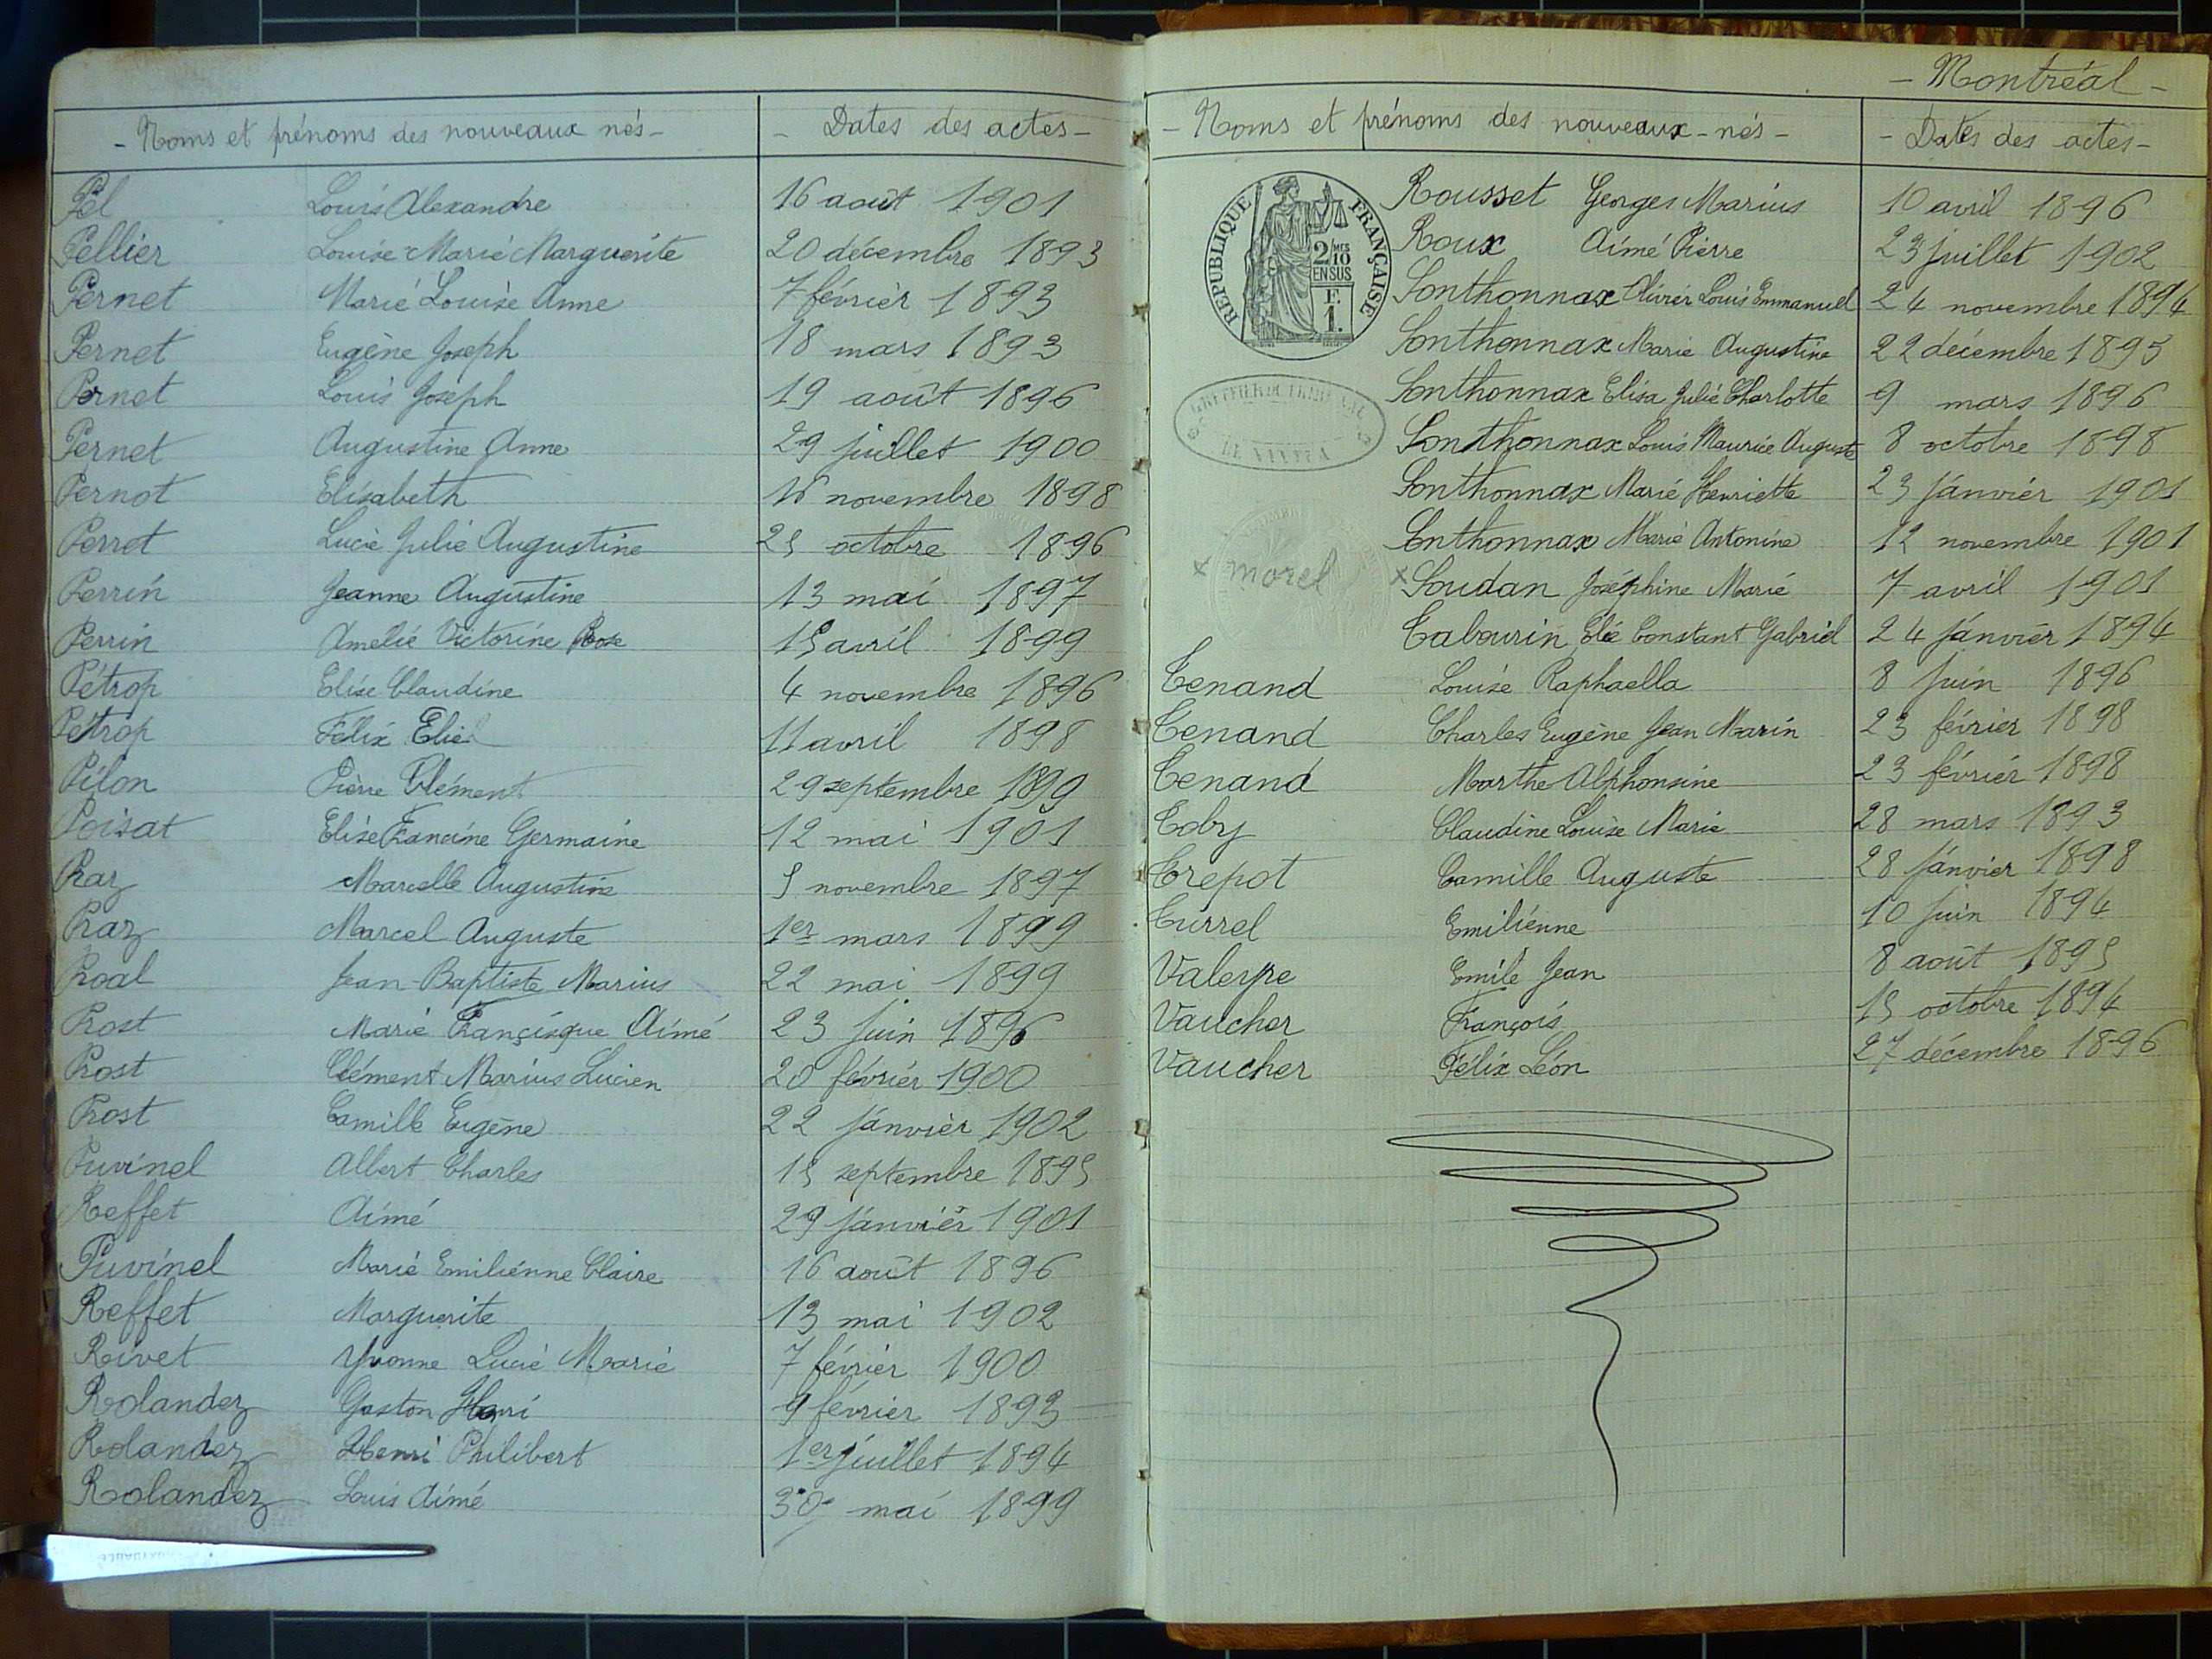 - Noms et prénoms des nouveaux nés - - Dates des actes -
Pel Louis Alexandre 16 août 1901
Pellier Louise Marie Marguerite 20 décembre 1893
Pernet Marie Louise Anne 7 février 1893
Pernet Eugène Joseph 18 mars 1893
Pernet Louis Joseph 19 août 1896
Pernet Augustine Anne 29 juillet 1900
Pernot Elisabeth 16 novembre 1898
Perret Lucie Julie Augustine 25 octobre 1896
Perrin Jeanne Augustine 13 mai 1897
Perrin Amelie Victorine Rose 15 avril 1899
Pétrop Elise Claudine 4 novembre 1896
Pétrop Félix Elie 11 avril 1898
Pilon Pierre Clément 29 septembre 1899
Poisat Elise Francine Germaine 12 mai 1901
Praz Marcelle Augustine 5 novembre 1897
Praz Marcel Auguste 1er mars 1899
Proal Jean-Baptiste Marius 22 mai 1899
Prost Marie Françisque Aimé 23 juin 1896
Prost Clément Marius Lucien 20 février 1900
Prost Camille Eugène 22 janvier 1902
Puvinel Albert Charles 15 septembre 1895
Reffet Aimé 29 janvier 1901
Puvinel Marie Emilienne Claire 16 août 1896
Reffet Marguerite 13 mai 1902
Rivet Yvonne Lucie Marie 7 février 1900
Rolandez Gaston Henri 9 février 1893
Rolandez Henri Philibert 1er juillet 1894
Rolandez Louis Aimé 30 mai 1899
- Montréal -
- Noms et prénoms des nouveaux-nés - - Dates des actes -
REPUBLIQUE FRANÇAISE
2/10 MES
EN SUS
F.
1.
Rousset Georges Marius 10 avril 1896
Roux Aimé Pierre 23 juillet 1902
Sonthonnax Olivier Louis Emmanuel 24 novembre 1894
Sonthonnax Marie Augustine 22 décembre 1895
Sonthonnax Elisa Julie Charlotte 9 mars 1896
Sonthonnax Louis Maurice Auguste 8 octobre 1898
Sonthonnax Marie Henriette 23 janvier 1901
Sonthonnax Marie Antonine 12 novembre 1901
x morel x Soudan Joséphine Marie 7 avril 1901
Tabourin Elie Constant Gabriel 24 janvier 1894
Tenand Louise Raphaella 8 juin 1896
Tenand Charles Eugène Jean Marin 23 février 1898
Tenand Marthe Alphonsine 23 février 1898
Toby Claudine Louise Marie 28 mars 1893
Trepot Camille Auguste 28 janvier 1898
Turrel Emilienne 10 juin 1894
Valerpe Emile Jean 8 août 1895
Vaucher François 15 octobre 1894
Vaucher Félix Léon 27 décembre 1896